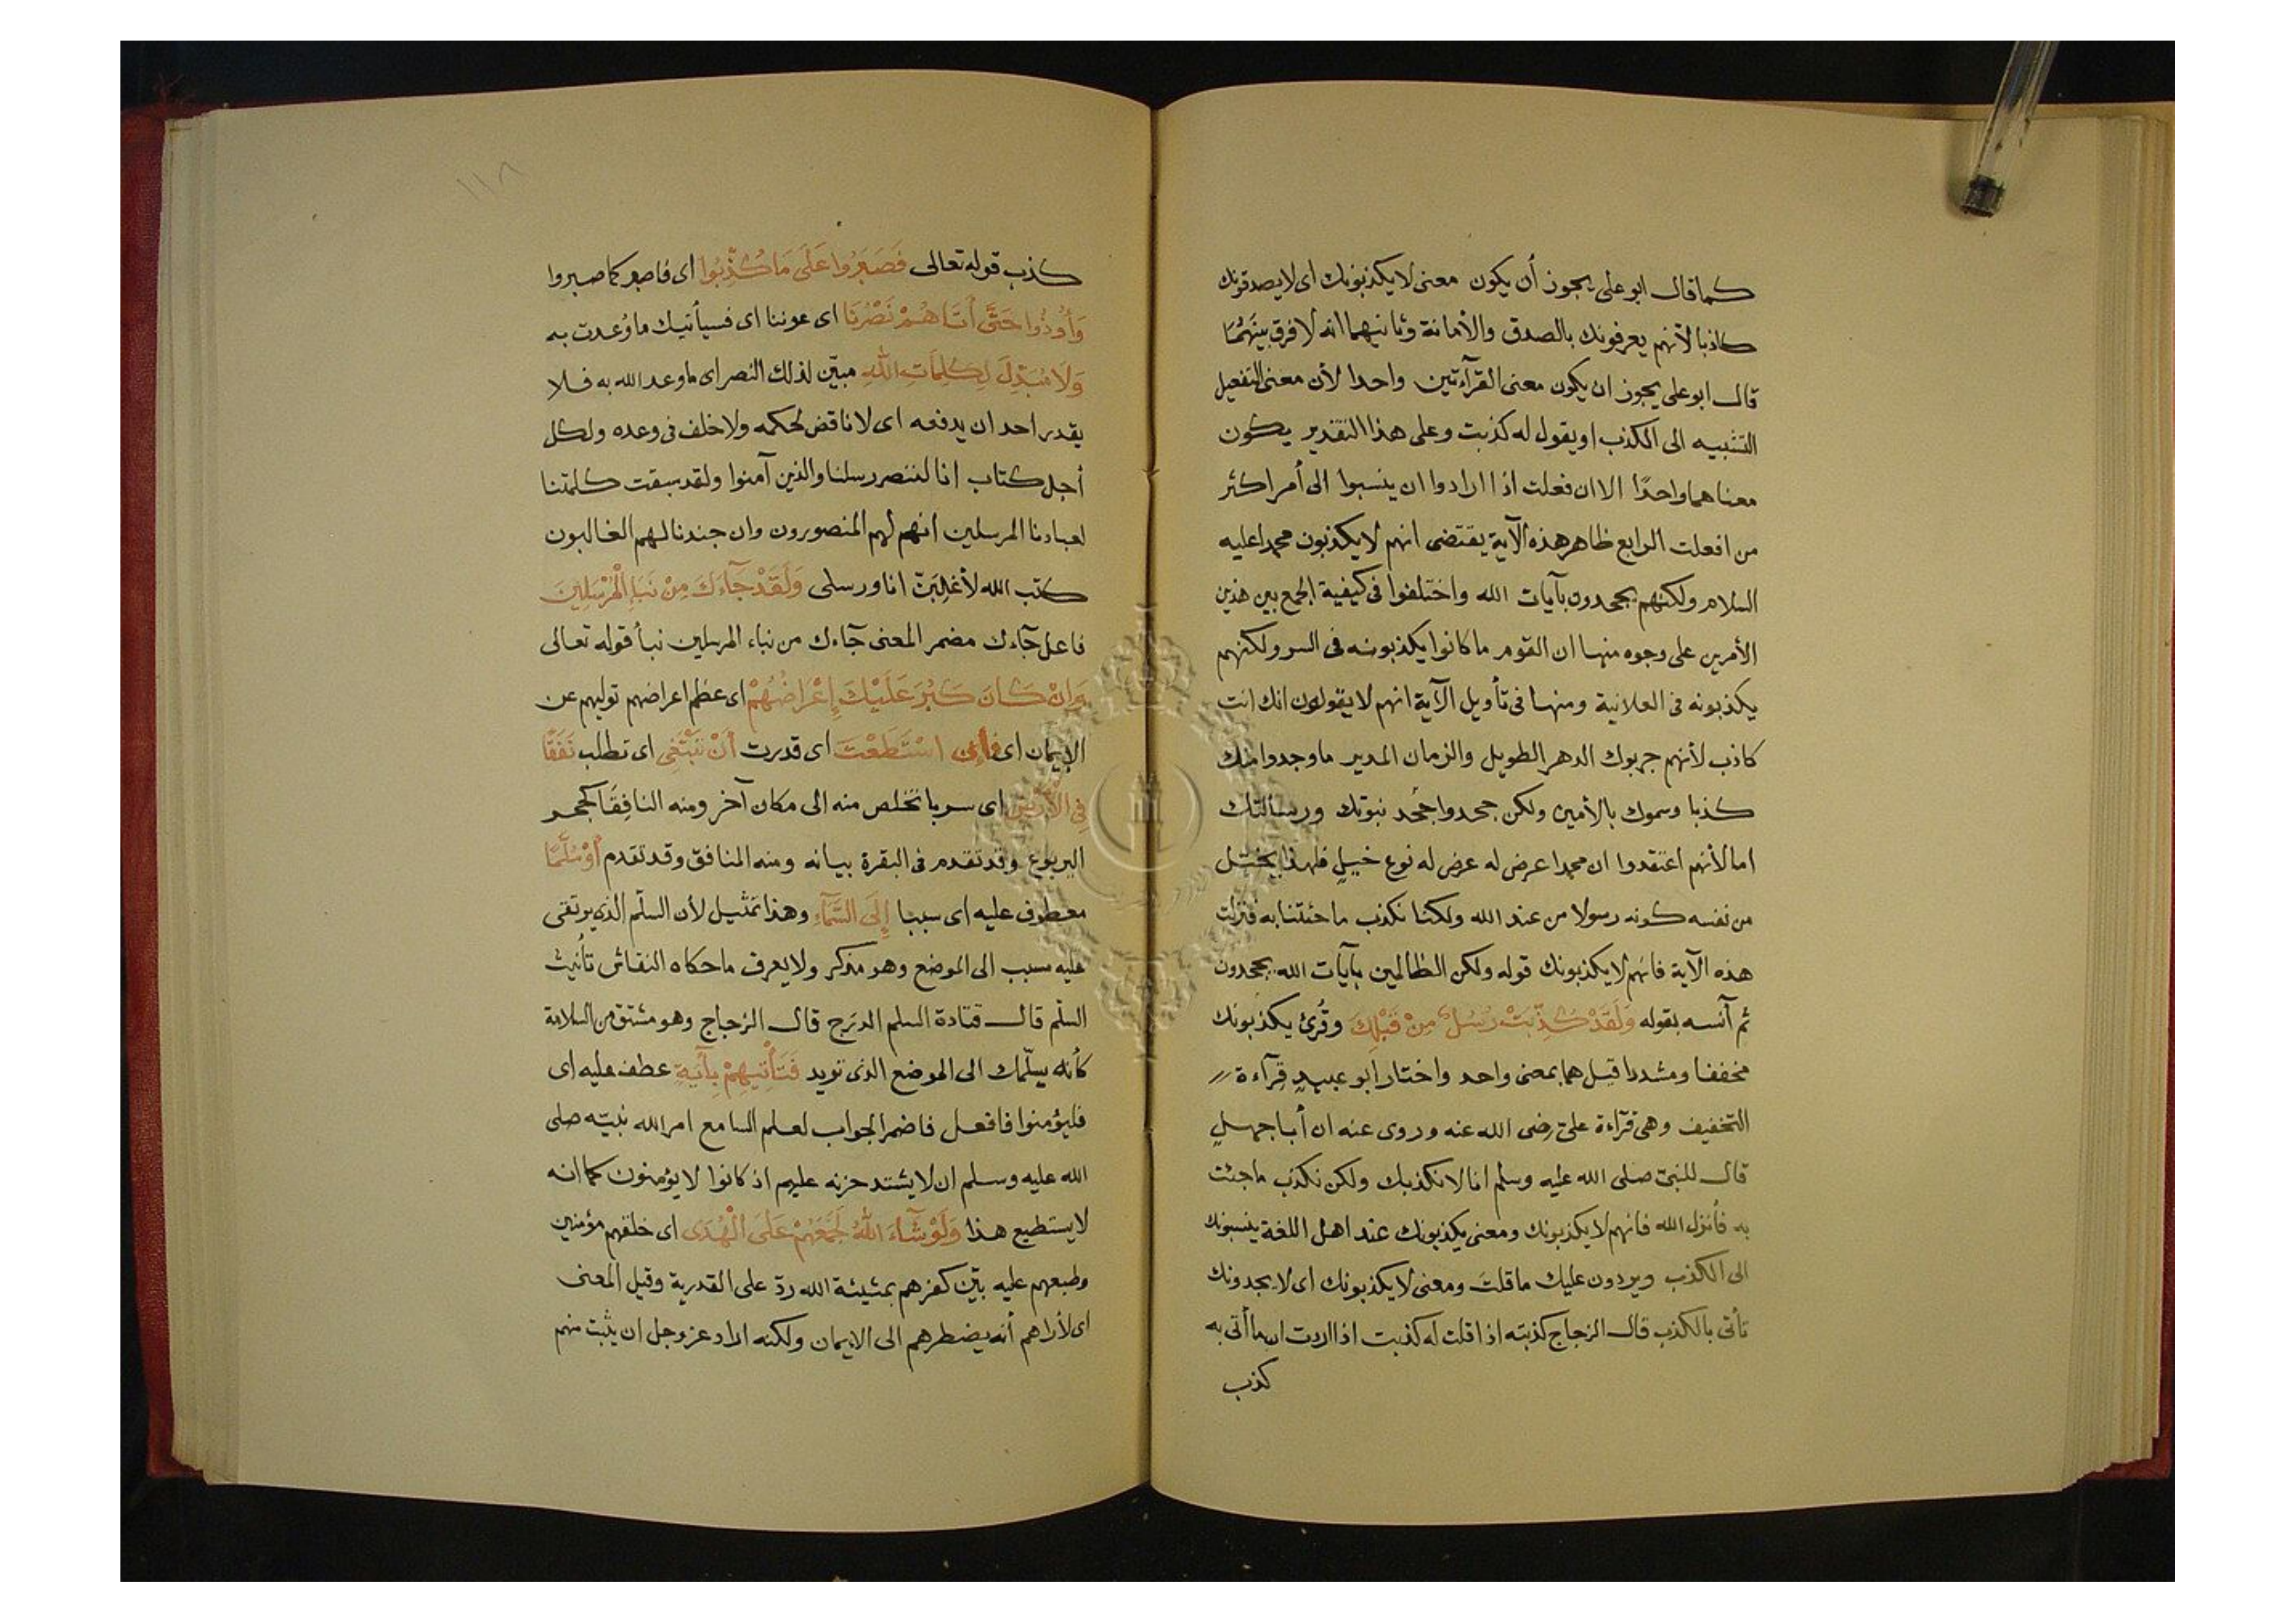 كما قال ابو على يجوز أن يكون معنى لا يكذبونك اى لا يصدقونك
كاذبا لأنهم يعرفونك بالصدق والأمانة وثانيهما انه لا فرق بينهما
قال ابو على يجوز ان يكون معنى القرآءتين واحدا لأن معنى التفعيل
التنبيه الى الكذب او يقول له كذبت وعلى هذا التقدير يكون
معناهما واحدًا الا ان فعلت اذا ارادوا ان ينسبوا الى أمر اكثر
من افعلت الرابع ظاهر هذه الآية يقتضى انهم لا يكذبون محمدا عليه
السلام ولكنهم يجحدون بآيات الله واختلفوا فى كيفية الجمع بين هذين
الأمرين على وجوه منها ان القوم ما كانوا يكذبونه فى السر ولكنهم
يكذبونه فى العلانية ومنها فى تأويل الآية انهم لا يقولون انك انت
كاذب لأنهم جربوك الدهر الطويل والزمان المدير ما وجدوا منك
كذبا وسموك بالأمين ولكن جحدوا جحد نبوتك ورسالتك
اما لأنهم اعتقدوا ان محمدا عرض له عرض له نوع خبل فلهذا يختل
من نفسه كونه رسولا من عند الله ولكنا نكذب ما جئتنا به فنزلت
هذه الآية فانهم لا يكذبونك قوله ولكن الظالمين بآيات الله يجحدون
ثم آنسه بقوله وَلَقَدْ كُذِّبَتْ رُسُلٌ مِنْ قَبْلِكَ وقُرئ يكذبونك
مخففا ومشددا قيل هما بمعنى واحد واختار ابو عبيد قرآءة
التخفيف وهى قرآءة علىّ رضى الله عنه وروى عنه ان أبا جهل
قال للنبىّ صلى الله عليه وسلم انا لا نكذبك ولكن نكذب ما جئت
به فأنزل الله فانهم لا يكذبونك ومعنى يكذبونك عند اهل اللغة ينسبونك
الى الكذب ويردون عليك ما قلتَ ومعنى لا يكذبونك اى لا يجدونك
تأتى بالكذب قال الزجاج كذبته اذا قلت له كذبت اذا اردت ان ما أتى به
كذب
١١٨
كذب قوله تعالى فَصَبَرُوا عَلَى مَا كُذِّبُوا اى فاصبر كما صبروا
وَأُوذُوا حَتَّى أَتَاهُمْ نَصْرُنَا اى عوننا اى فسيأتيك ما وُعدت به
وَلَا مُبَدِّلَ لِكَلِمَاتِ اللهِ مبيّن لذلك النصر اى ما وعد الله به فلا
يقدر احد ان يدفعه اى لا ناقض لحكمه ولا خلف فى وعده ولكل
أجل كتاب انا لننصر رسلنا والذين آمنوا ولقد سبقت كلمتنا
لعبادنا المرسلين انهم لهم المنصورون وان جندنا لهم الغالبون
كتب الله لأغلبنّ انا ورسلى وَلَقَدْ جَآءَكَ مِنْ نَبَإِ الْمُرْسَلِينَ
فاعل جآءك مضمر المعنى جآءك من نباء المرسلين نبأ قوله تعالى
وَإِنْ كَانَ كَبُرَ عَلَيْكَ إِعْرَاضُهُمْ اى عظم اعراضهم توليهم عن
الإيمان اى فأن اسْتَطَعْتَ اى قدرت أَنْ تَبْتَغِى اى تطلب نَفَقًا
فِى الْأَرْضِ اى سربا تخلص منه الى مكان آخر ومنه النافقا كجحر
اليربوع وقد تقدم فى البقرة بيانه ومنه المنافق وقد تقدم أَوْ سُلَّمًا
معطوف عليه اى سببا إِلَى السَّمَآءِ وهذا تمثيل لأن السلّم الذى يرتقى
عليه سبب الى الموضع وهو مذكر ولا يعرف ما حكاه النقاش تأنيث
السلّم قال قتادة السلم الدرج قال الزجاج وهو مشتق من السلامة
كأنه يسلّمك الى الموضع الذى تريد فَتَأْتِيَهُمْ بِآيَةٍ عطف عليه اى
فليؤمنوا فافعل فاضمر الجواب لعلم السامع امر الله نبيّه صلى
الله عليه وسلم ان لا يشتد حزنه عليهم اذ كانوا لا يؤمنون كما انه
لا يستطيع هذا وَلَوْ شَآءَ اللهُ لَجَمَعَهُمْ عَلَى الْهُدَى اى خلقهم مؤمنين
وطبعهم عليه بيّن كفرهم بمشيئة الله ردّ على القدرية وقيل المعنى
اى لأراهم أنه يضطرهم الى الايمان ولكنه اراد عز وجل ان يثبت منهم